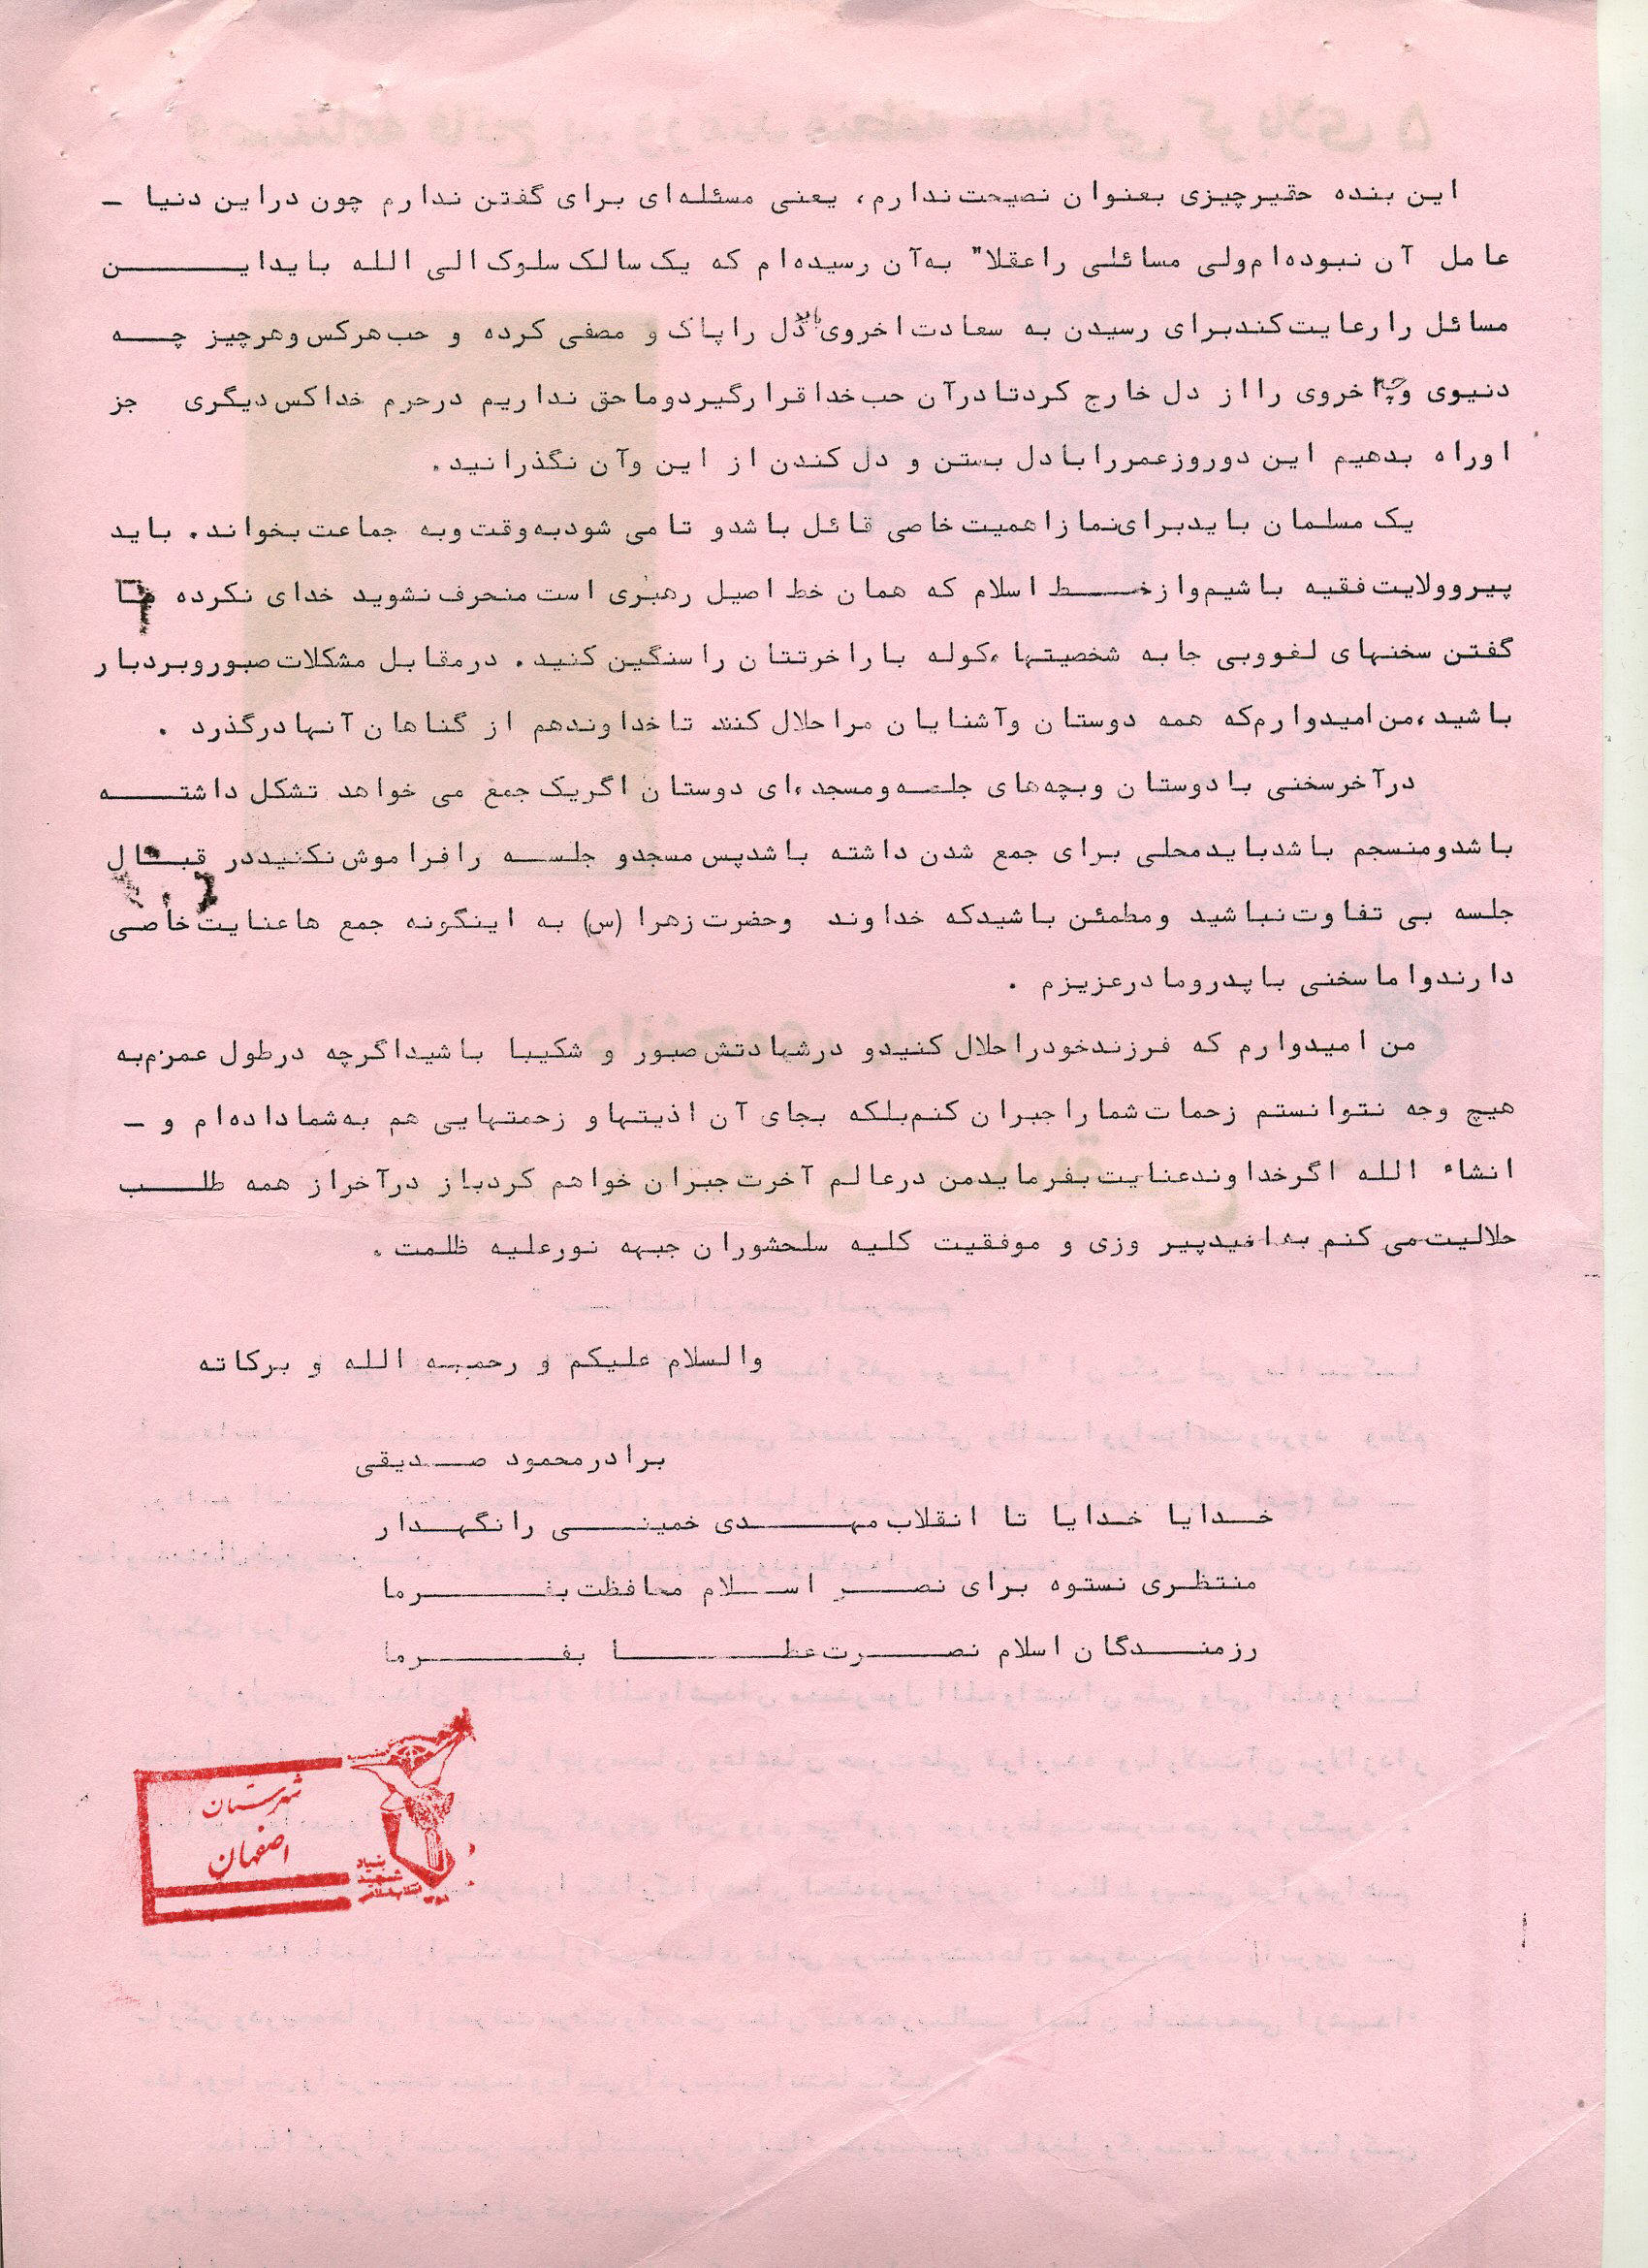 این بنده حقیرچیزی بعنوان نصیحت ندارم، یعنی مسئله‌ای برای گفتن ندارم چون دراین دنیا -
عامل آن نبوده‌ام ولی مسائلی راعقلا" به‌آن رسیده‌ام که یک سالک سلوک الی الله بایدایـــن
مسائل رارعایت کندبرای رسیدن به سعادت اخروی باید دل راپاک و مصفی کرده و حب هرکس وهرچیز چـــه
دنیوی وچه اخروی رااز دل خارج کردتادرآن حب خداقرارگیردوماحق نداریم درحرم خداکس دیگری جز
اوراه بدهیم این دوروزعمررابادل بستن و دل کندن از این وآن نگذرانید.
یک مسلمان بایدبرای نمازاهمیت خاصی قائل باشدو تا می شودبه وقت وبه جماعت بخواند. باید
پیروولایت فقیه باشیم وازخـــط اسلام که همان خط اصیل رهبری است منحرف نشوید خدای نکرده با
گفتن سخنهای لغووبی جابه شخصیتها،کوله باراخرتتان راسنگین کنید. درمقابل مشکلات صبوروبردبار
باشید،من امیدوارم که همه دوستان وآشنایان مراحلال کنند تاخداوندهم از گناهان آنهادرگذرد .
درآخرسخنی بادوستان وبچه‌های جلسه ومسجد،ای دوستان اگریک جمع می خواهد تشکل داشتـــه
باشدومنسجم باشدبایدمحلی برای جمع شدن داشته باشدپس مسجدو جلسـه رافراموش نکنیددر قبـال
جلسه بی تفاوت نباشید ومطمئن باشیدکه خداوند وحضرت زهرا (س) به اینگونه جمع هاعنایت خاصی
دارندواماسخنی باپدرومادرعزیزم .
من امیدوارم که فرزندخودراحلال کنیدو درشهادتش صبور و شکیبا باشیداگرچه درطول عمرم به
هیچ وجه نتوانستم زحمات شماراجبران کنم بلکه بجای آن اذیتهاو زحمتهایی هم به‌شماداده‌ام و -
انشاء الله اگرخداوندعنایت بفرمایدمن درعالم آخرت جبران خواهم کردباز درآخراز همه طلـــب
حلالیت می کنم به امیدپیر وزی و موفقیت کلیه سلحشوران جبهه نورعلیه ظلمت.
والسلام علیکم و رحمـه الله و برکاته
برادرمحمود صـدیقی
خـدایا خـدایا تا انقلاب مهـــدی خمینـــی رانگهـدار
منتظـری نستوه برای نصـــر اســلام محافظت بفـــرما
رزمنــدگان اسلام نصـــرت عطـــا بفـــرما
شهرستان
اصفهان
بنیاد
شهید
انقلاب اسلامی